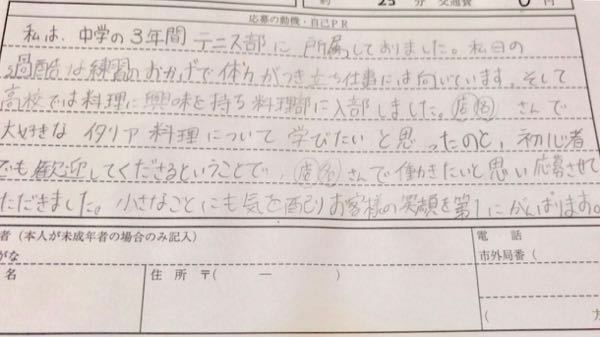 約 25 分 交通費 0 円
応募の動機・自己PR
私は、中学の3年間テニス部に所属しておりました。私日の
過酷は練習のおかげで体力がつき立ち仕事には向いています。そして
高校では料理に興味を持ち料理部に入部しました。店名さんで
大好きなイタリア料理について学びたいと思ったのと、初心者
でも歓迎してくださるということで、店名さんで働きたいと思い応募させて
ただきました。小さなことにも気を配りお客様の笑顔を第1にがんばります。
者（本人が未成年者の場合のみ記入）
がな
名
住 所 〒（ － ）
電 話
市外局番（
（ 方